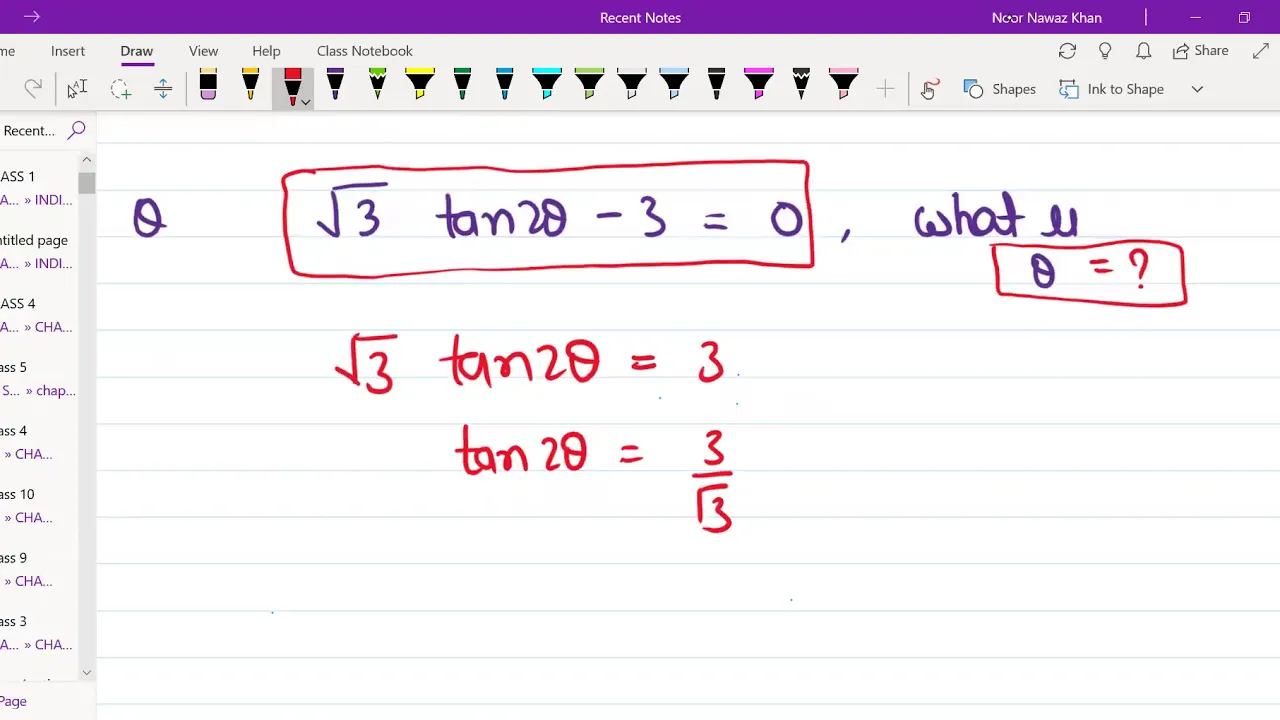 Recent Notes
Noor Nawaz Khan
me Insert Draw View Help Class Notebook
Share
Shapes
Ink to Shape
Recent...
ASS 1
A... » INDI...
ntitled page
A... » INDI...
ASS 4
A... » CHA...
ass 5
S... » chap...
ass 4
» CHA...
ass 10
» CHA...
ass 9
» CHA...
ass 3
A... » CHA...
Page
Q √3 tan2θ - 3 = 0, what is
θ = ?
√3 tan2θ = 3
tan2θ = 3/√3